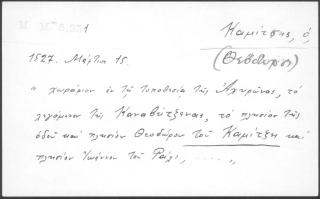 M Mᵐ 5,231
Καμίτσης, ὁ
(Θεόδωρος)
1527. Μάρτιο 15.
" χωράφιον ἐν τῇ τοποθεσίᾳ τῆς Ἀχυρῶνας, τὸ
λεγόμενον τῆς Καναβίτζενας, τὸ πλησίον τῆς
ὁδοῦ καὶ πλησίον Θεοδώρου τοῦ Καμίτζη καὶ
πλησίον Ἰωάννου τοῦ Ράλι, ......„